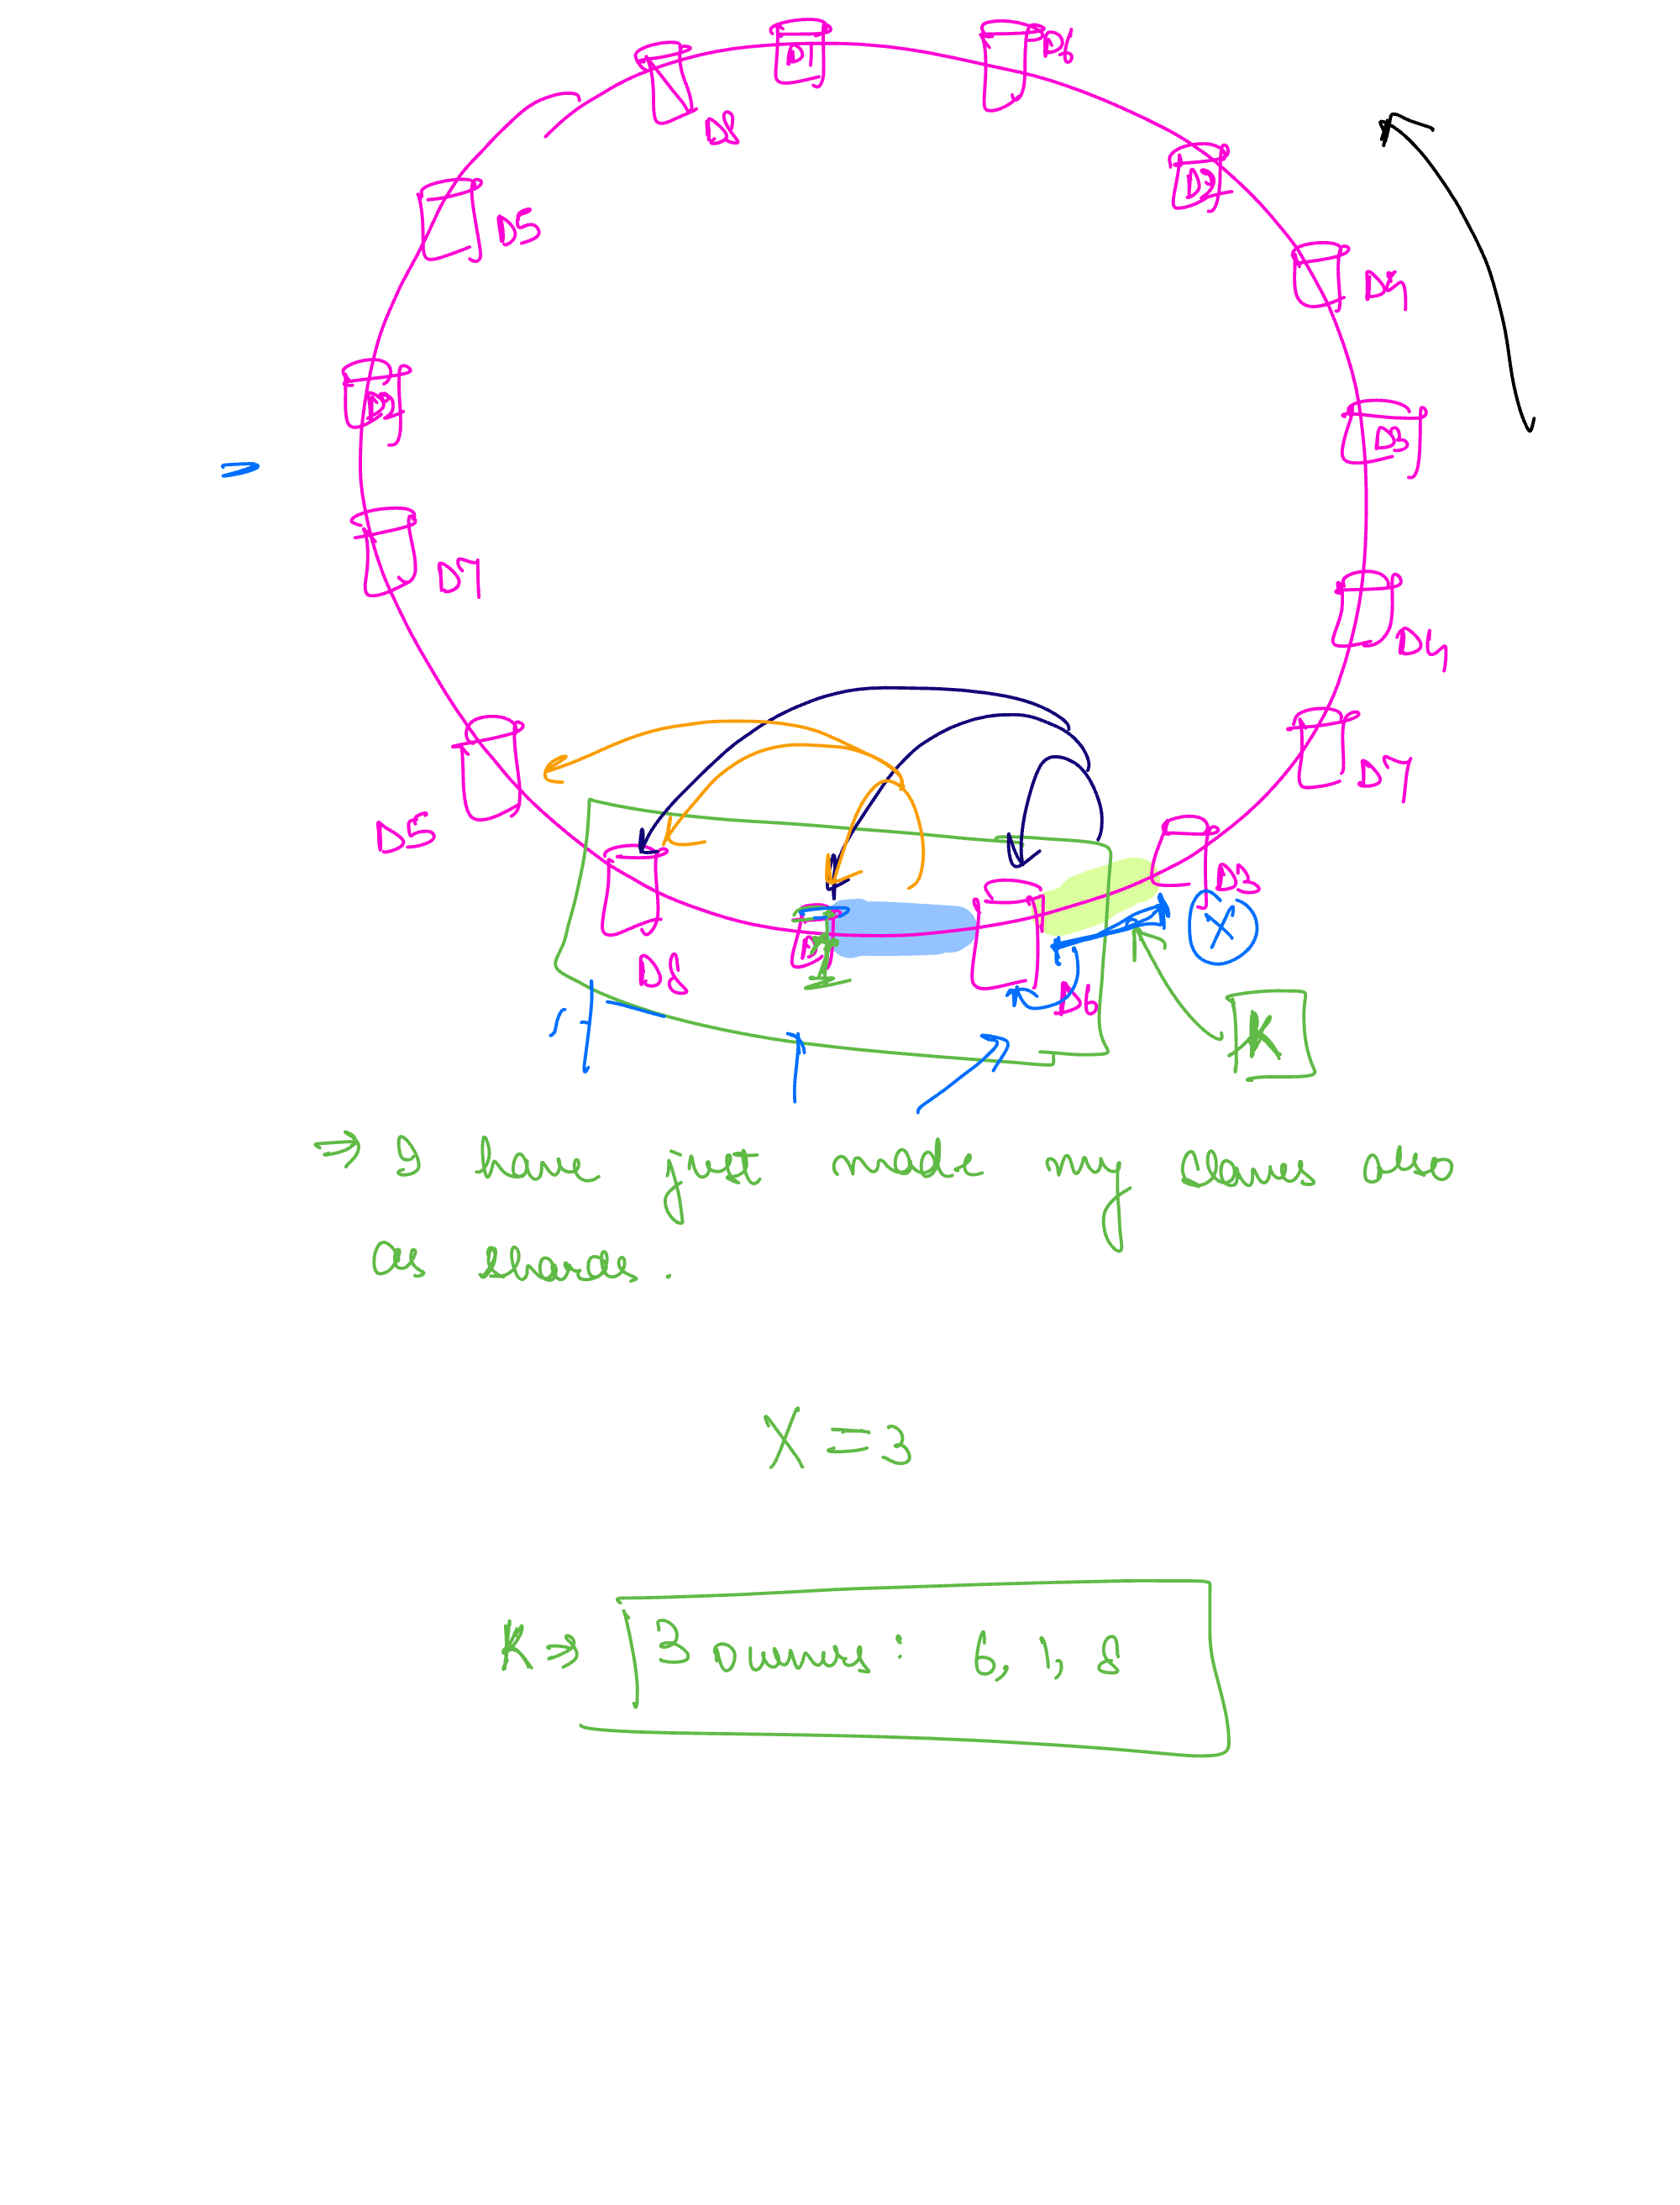 D1
D6
D8
D2
D4
D5
D3
D2
D7
D4
D7
D5
D3
X
D8
D1
D6
K
→ I have just made my slaves also
as shards.
X = 3
K → 3 owners: 6, 1, 8